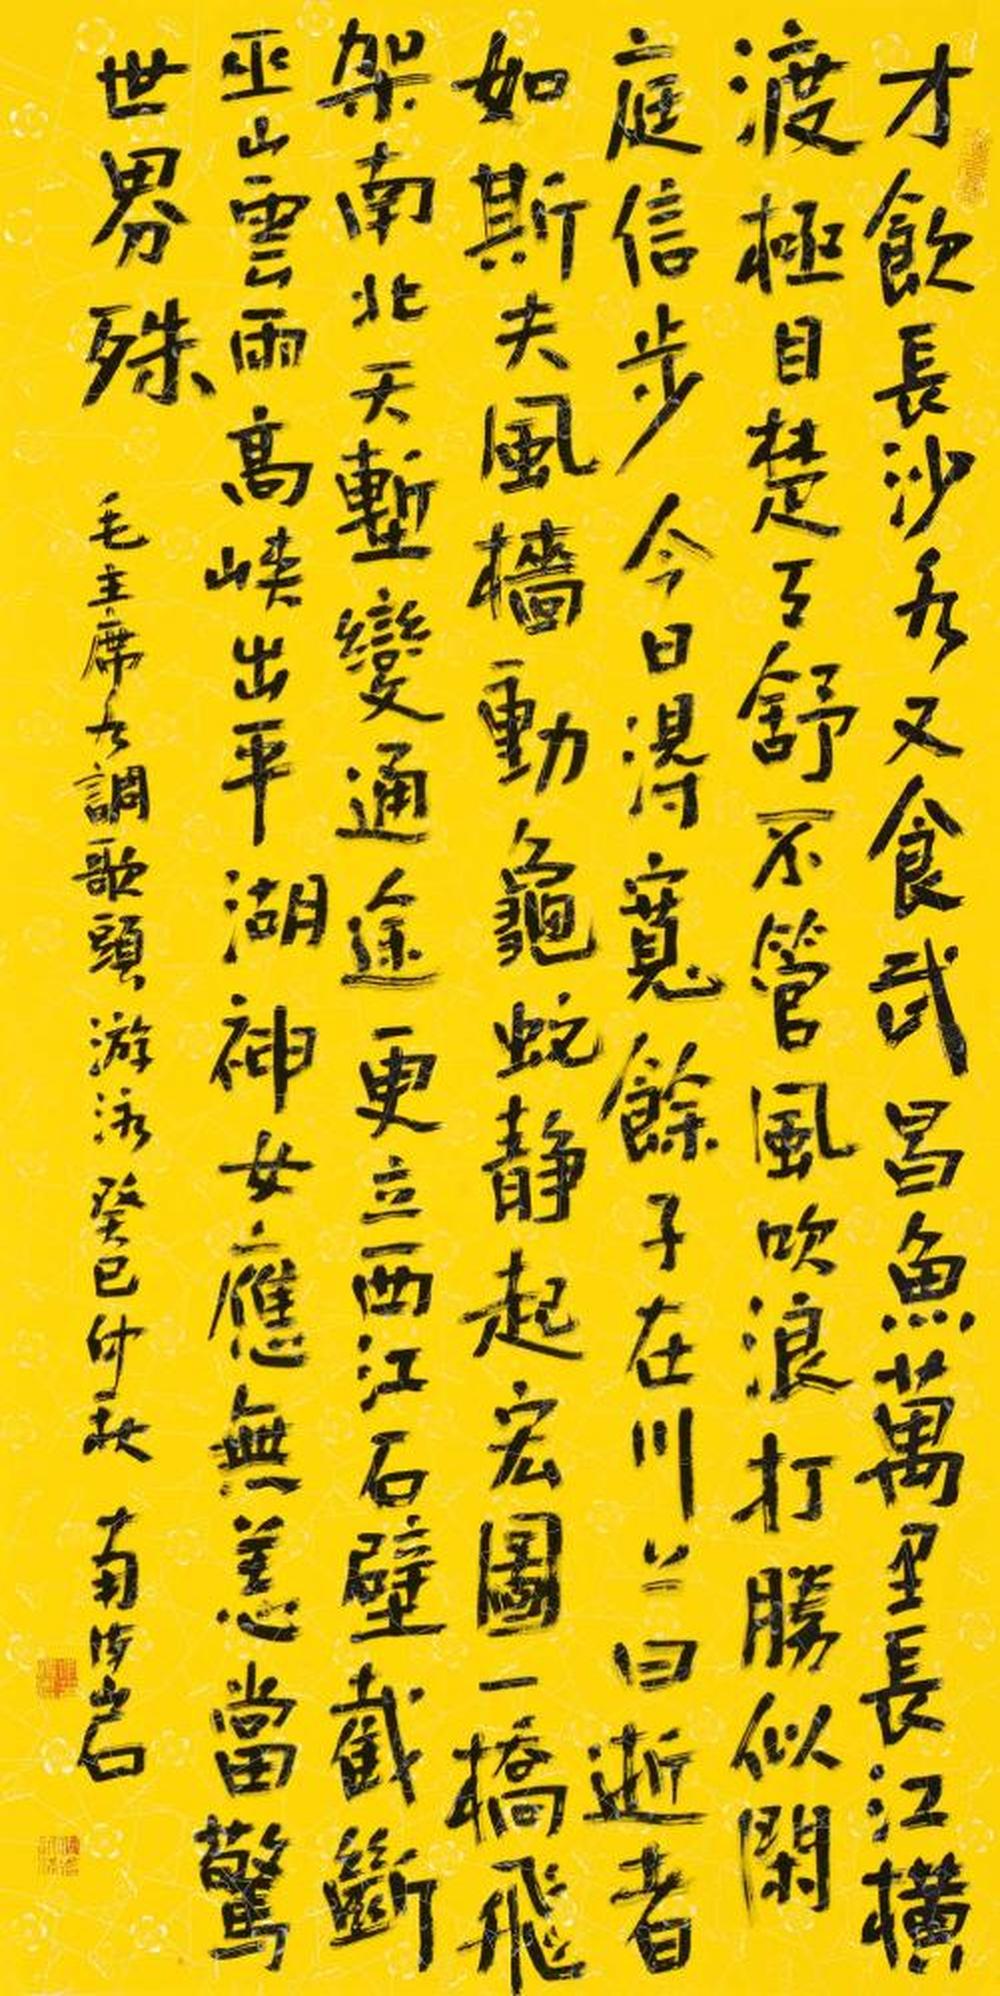 才飲長沙水又食武昌魚萬里長江橫
渡極目楚天舒不管風吹浪打勝似閑
庭信步今日得寬餘子在川上曰逝者
如斯夫風檣動龜蛇静起宏圖一橋飛
架南北天塹變通途更立西江石壁截斷
巫山雲雨高峽出平湖神女應無恙當驚
世界殊 毛主席水調歌頭游泳癸巳仲秋 南海岩